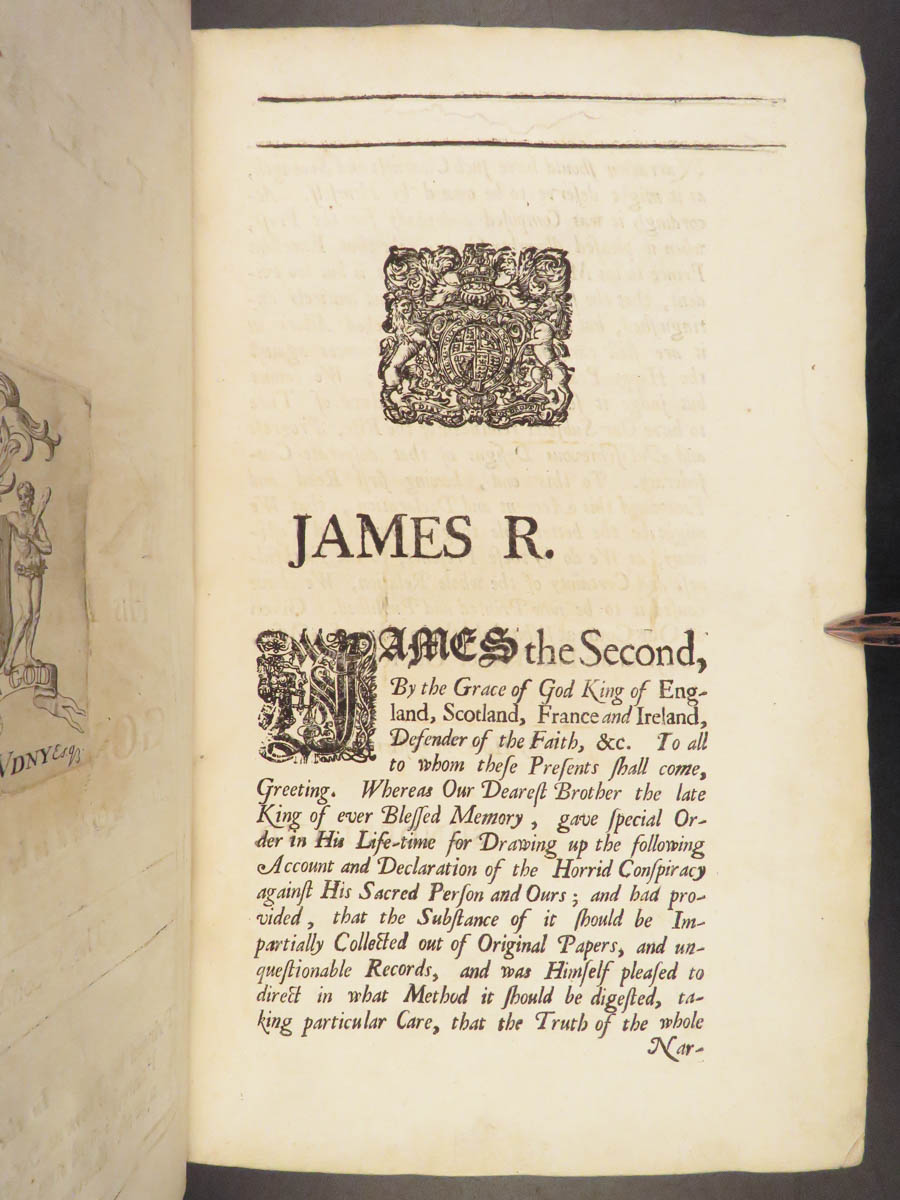 GOD
VDNY Esqr
JAMES R.
JAMES the Second,
By the Grace of God King of Eng-
land, Scotland, France and Ireland,
Defender of the Faith, &c. To all
to whom theſe Preſents ſhall come,
Greeting. Whereas Our Deareſt Brother the late
King of ever Bleſſed Memory, gave ſpecial Or-
der in His Life-time for Drawing up the following
Account and Declaration of the Horrid Conſpiracy
againſt His Sacred Perſon and Ours; and had pro-
vided, that the Subſtance of it ſhould be Im-
partially Collected out of Original Papers, and un-
queſtionable Records, and was Himſelf pleaſed to
direct in what Method it ſhould be digeſted, ta-
king particular Care, that the Truth of the whole
Nar-